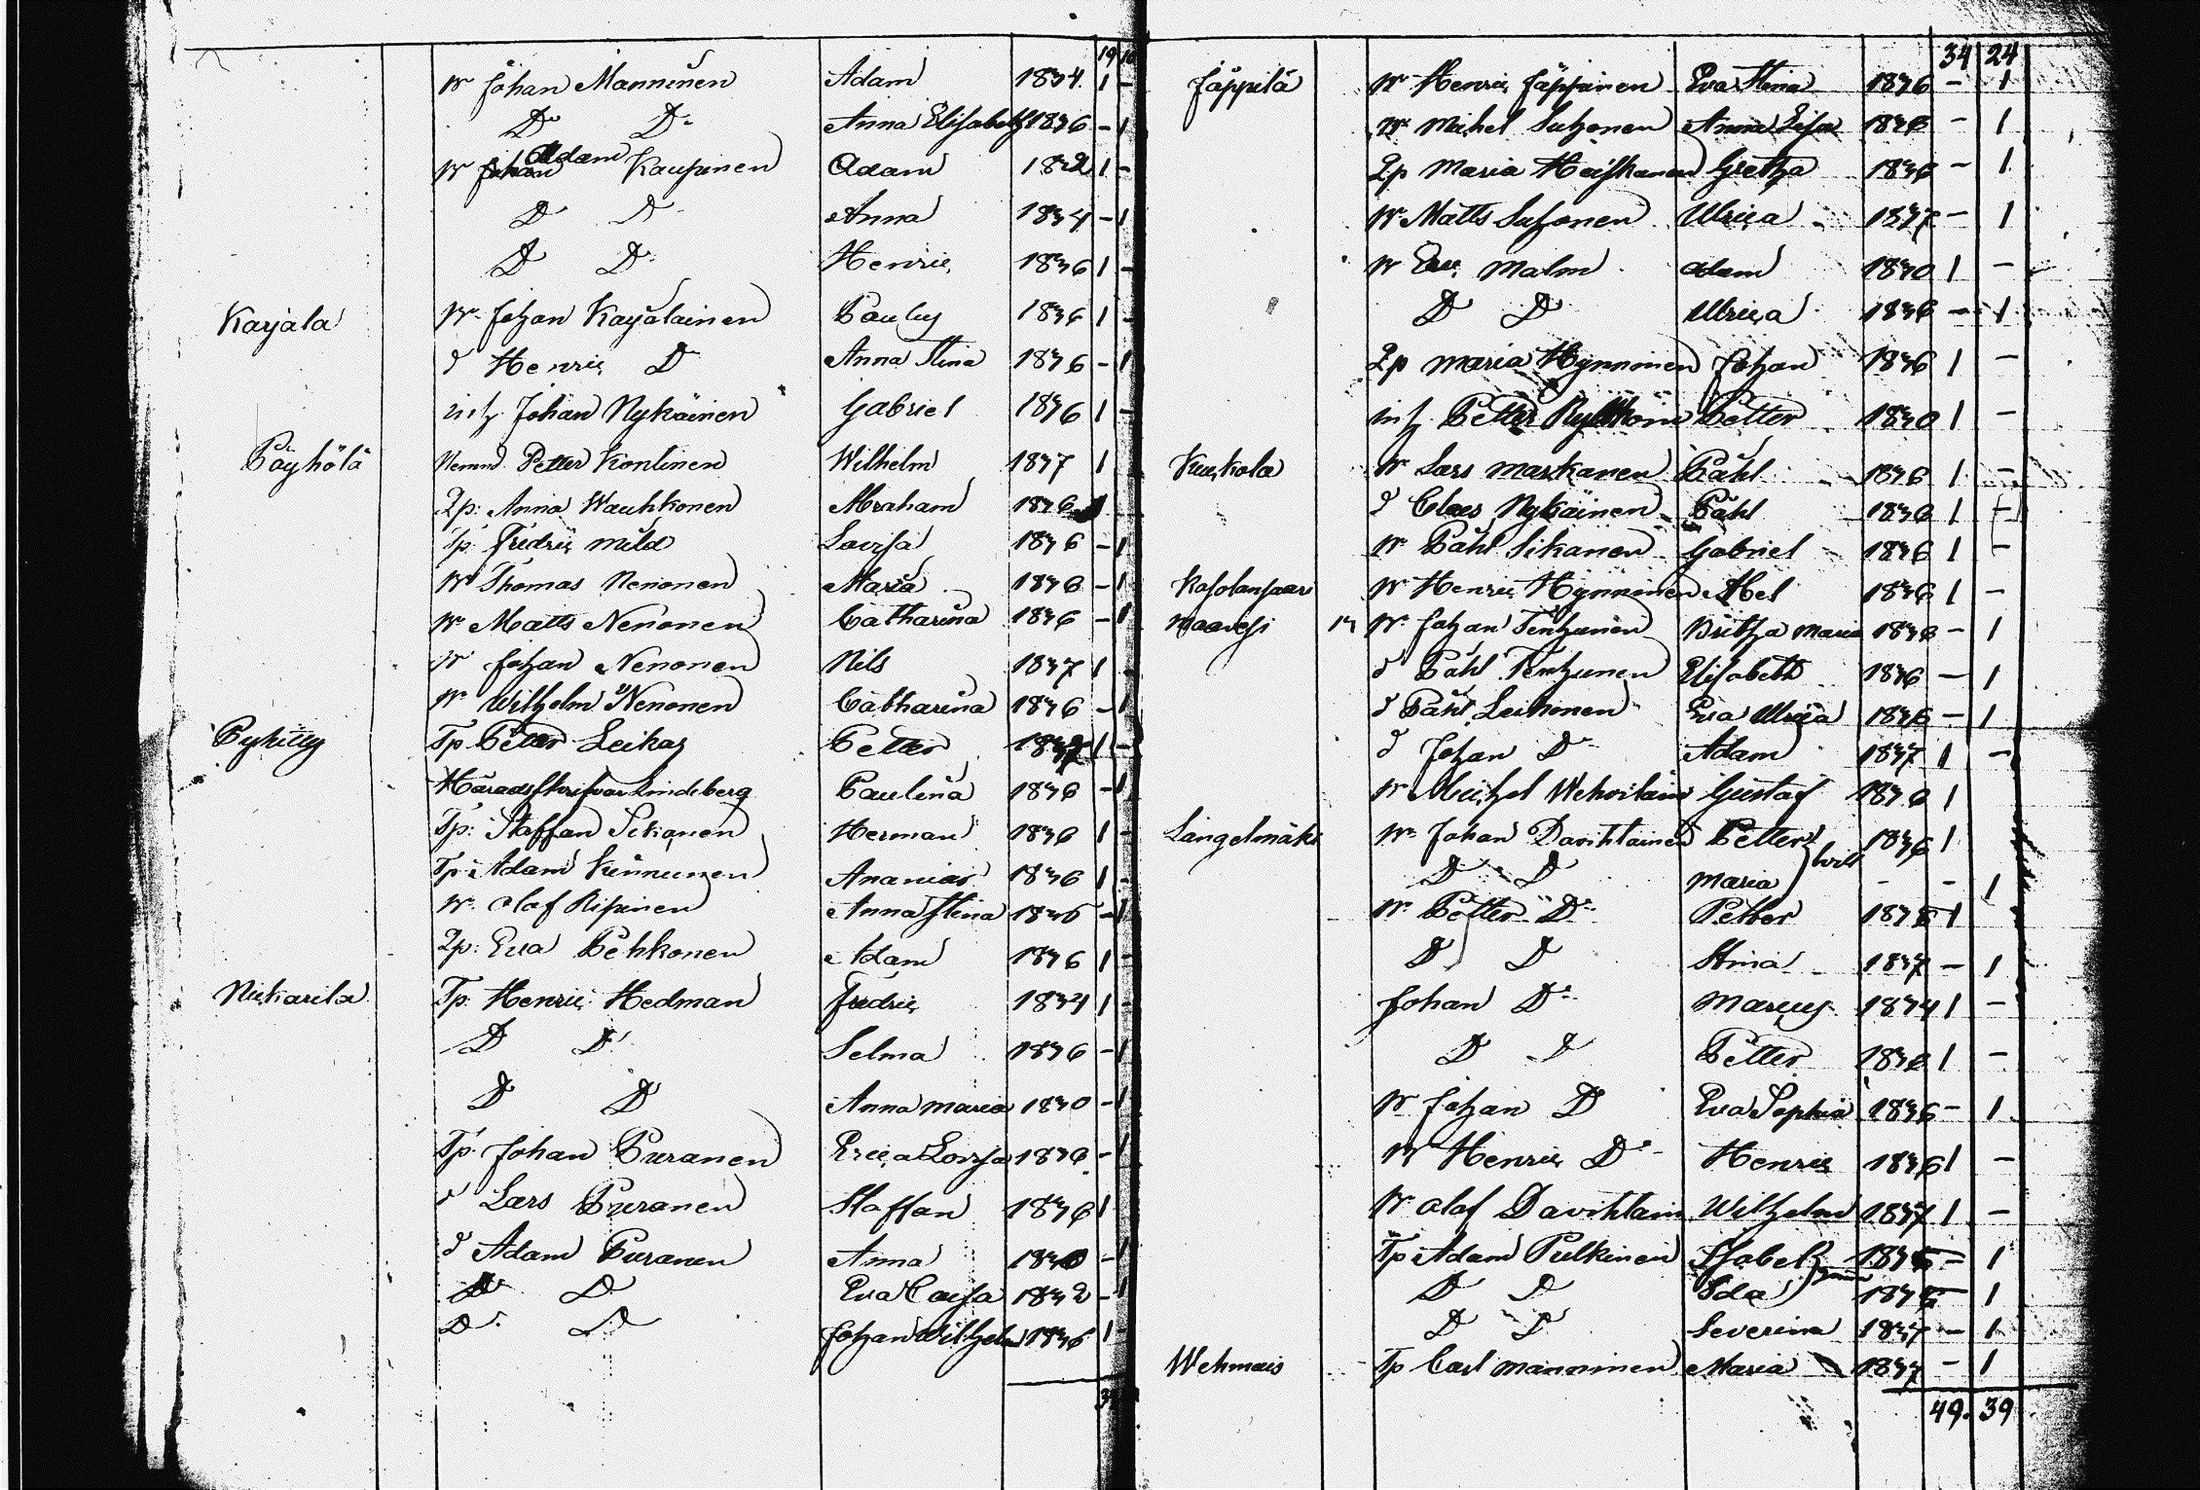 19
W Johan Manninen Adam 1834 1 -
D:o D:o Anna Elisabeth 1836 - 1
W Johan Adam Kaupinen Adam 1832 1 -
D D Anna 1834 - 1
D D Henric 1836 1 -
Karjala W Johan Karjalainen Paulus 1836 1 -
d Henric D Anna Stina 1836 - 1
inh Johan Nykäinen Gabriel 1836 1 -
Päyhölä Nemnd. Petter Konlinen Wilhelm 1837 1
Qp: Anna Wauhkonen Abraham 1836 1
Tp. Fredric Mild Lovisa 1836 - 1
W Thomas Nenonen Maria 1836 - 1
W Matts Nenonen Catharina 1836 - 1
W Johan Nenonen Nils 1837 1 -
W Wilhelm Nenonen Catharina 1836 - 1
Pyhitty Tp Petter Leikas Petter 1837 1 -
Häradsskrifvar Lindeberg Paulina 1836 - 1
Tp: Staffan Sikanen Herman 1836 1 -
Tp: Adam Kinnunen Ananias 1836 1 -
W. Olof Ripinen Anna Stina 1836 - 1
Qp: Eva Pehkonen Adam 1836 1 -
Niskarila Tp. Henric Hedman Fredric 1834 1 -
D D Selma 1836 - 1
D D Anna Maria 1830 - 1
Tp. Johan Puranen Erica Lovisa 1836 - 1
d Lars Puranen Staffan 1836 1
d Adam Puranen Anna 1830 - 1
D D Eva Caisa 1832 - 1
D D Johan Wilhelm 1836 1
34 24
Jäppilä W Henric Jäppinen Eva Stina 1836 - 1
W Michel Suhonen Anna Lisa 1836 - 1
Qp Maria Heiskanen Gretha 1836 - 1
W Matts Suhonen Ulrica 1837 - 1
W Malm Adam 1830 1 -
D D Ulrica 1836 - 1
Qp Maria Hynninen Johan 1836 1 -
inh Petter Petter 1830 1 -
Kuukola W Lars Markanen Påhl 1836 1 -
d Claes Nykäinen Påhl 1836 1 -
W Påhl Sikanen Gabriel 1836 1 -
Kaholansaari W Henric Hynninen Abel 1836 1 -
Maavesi W Johan Tenhunen Britha Maria 1836 - 1
d Påhl Tenhunen Elisabeth 1836 - 1
d Påhl Leihonen Eva Ulrica 1836 - 1
d Johan D Adam 1837 1 -
W Michel Wehvilain Gustaf 1836 1
Längelmäki W Johan Davihlainen Petter 1836 1
D D Maria - - 1
W Petter D:o Petter 1836 1
D D Stina 1837 - 1
Johan D:o Marcus 1834 1 -
D D Petter 1836 1 -
W Johan D Eva Sophia 1836 - 1
W Henric D:o Henric 1836 1 -
W Olof Davihlain Wilhelm 1837 1 -
Tp Adam Pulkinen Isabel 1836 - 1
D D Ida 1836 - 1
D D Severina 1837 - 1
Wehmais Tp Carl Manninen Maria 1837 - 1
49. 39